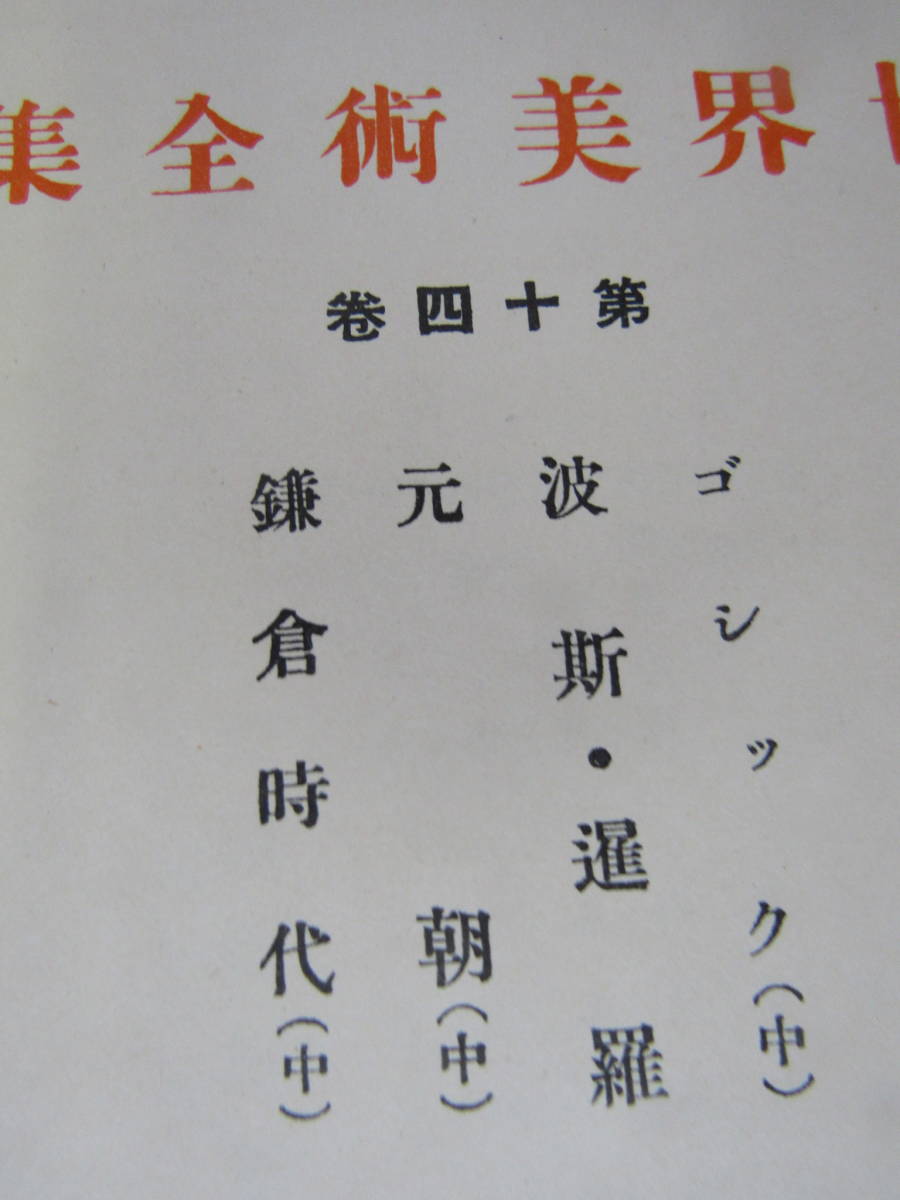 世界美術全集
第十四卷
ゴシック(中)
波斯・暹羅
元朝(中)
鎌倉時代(中)